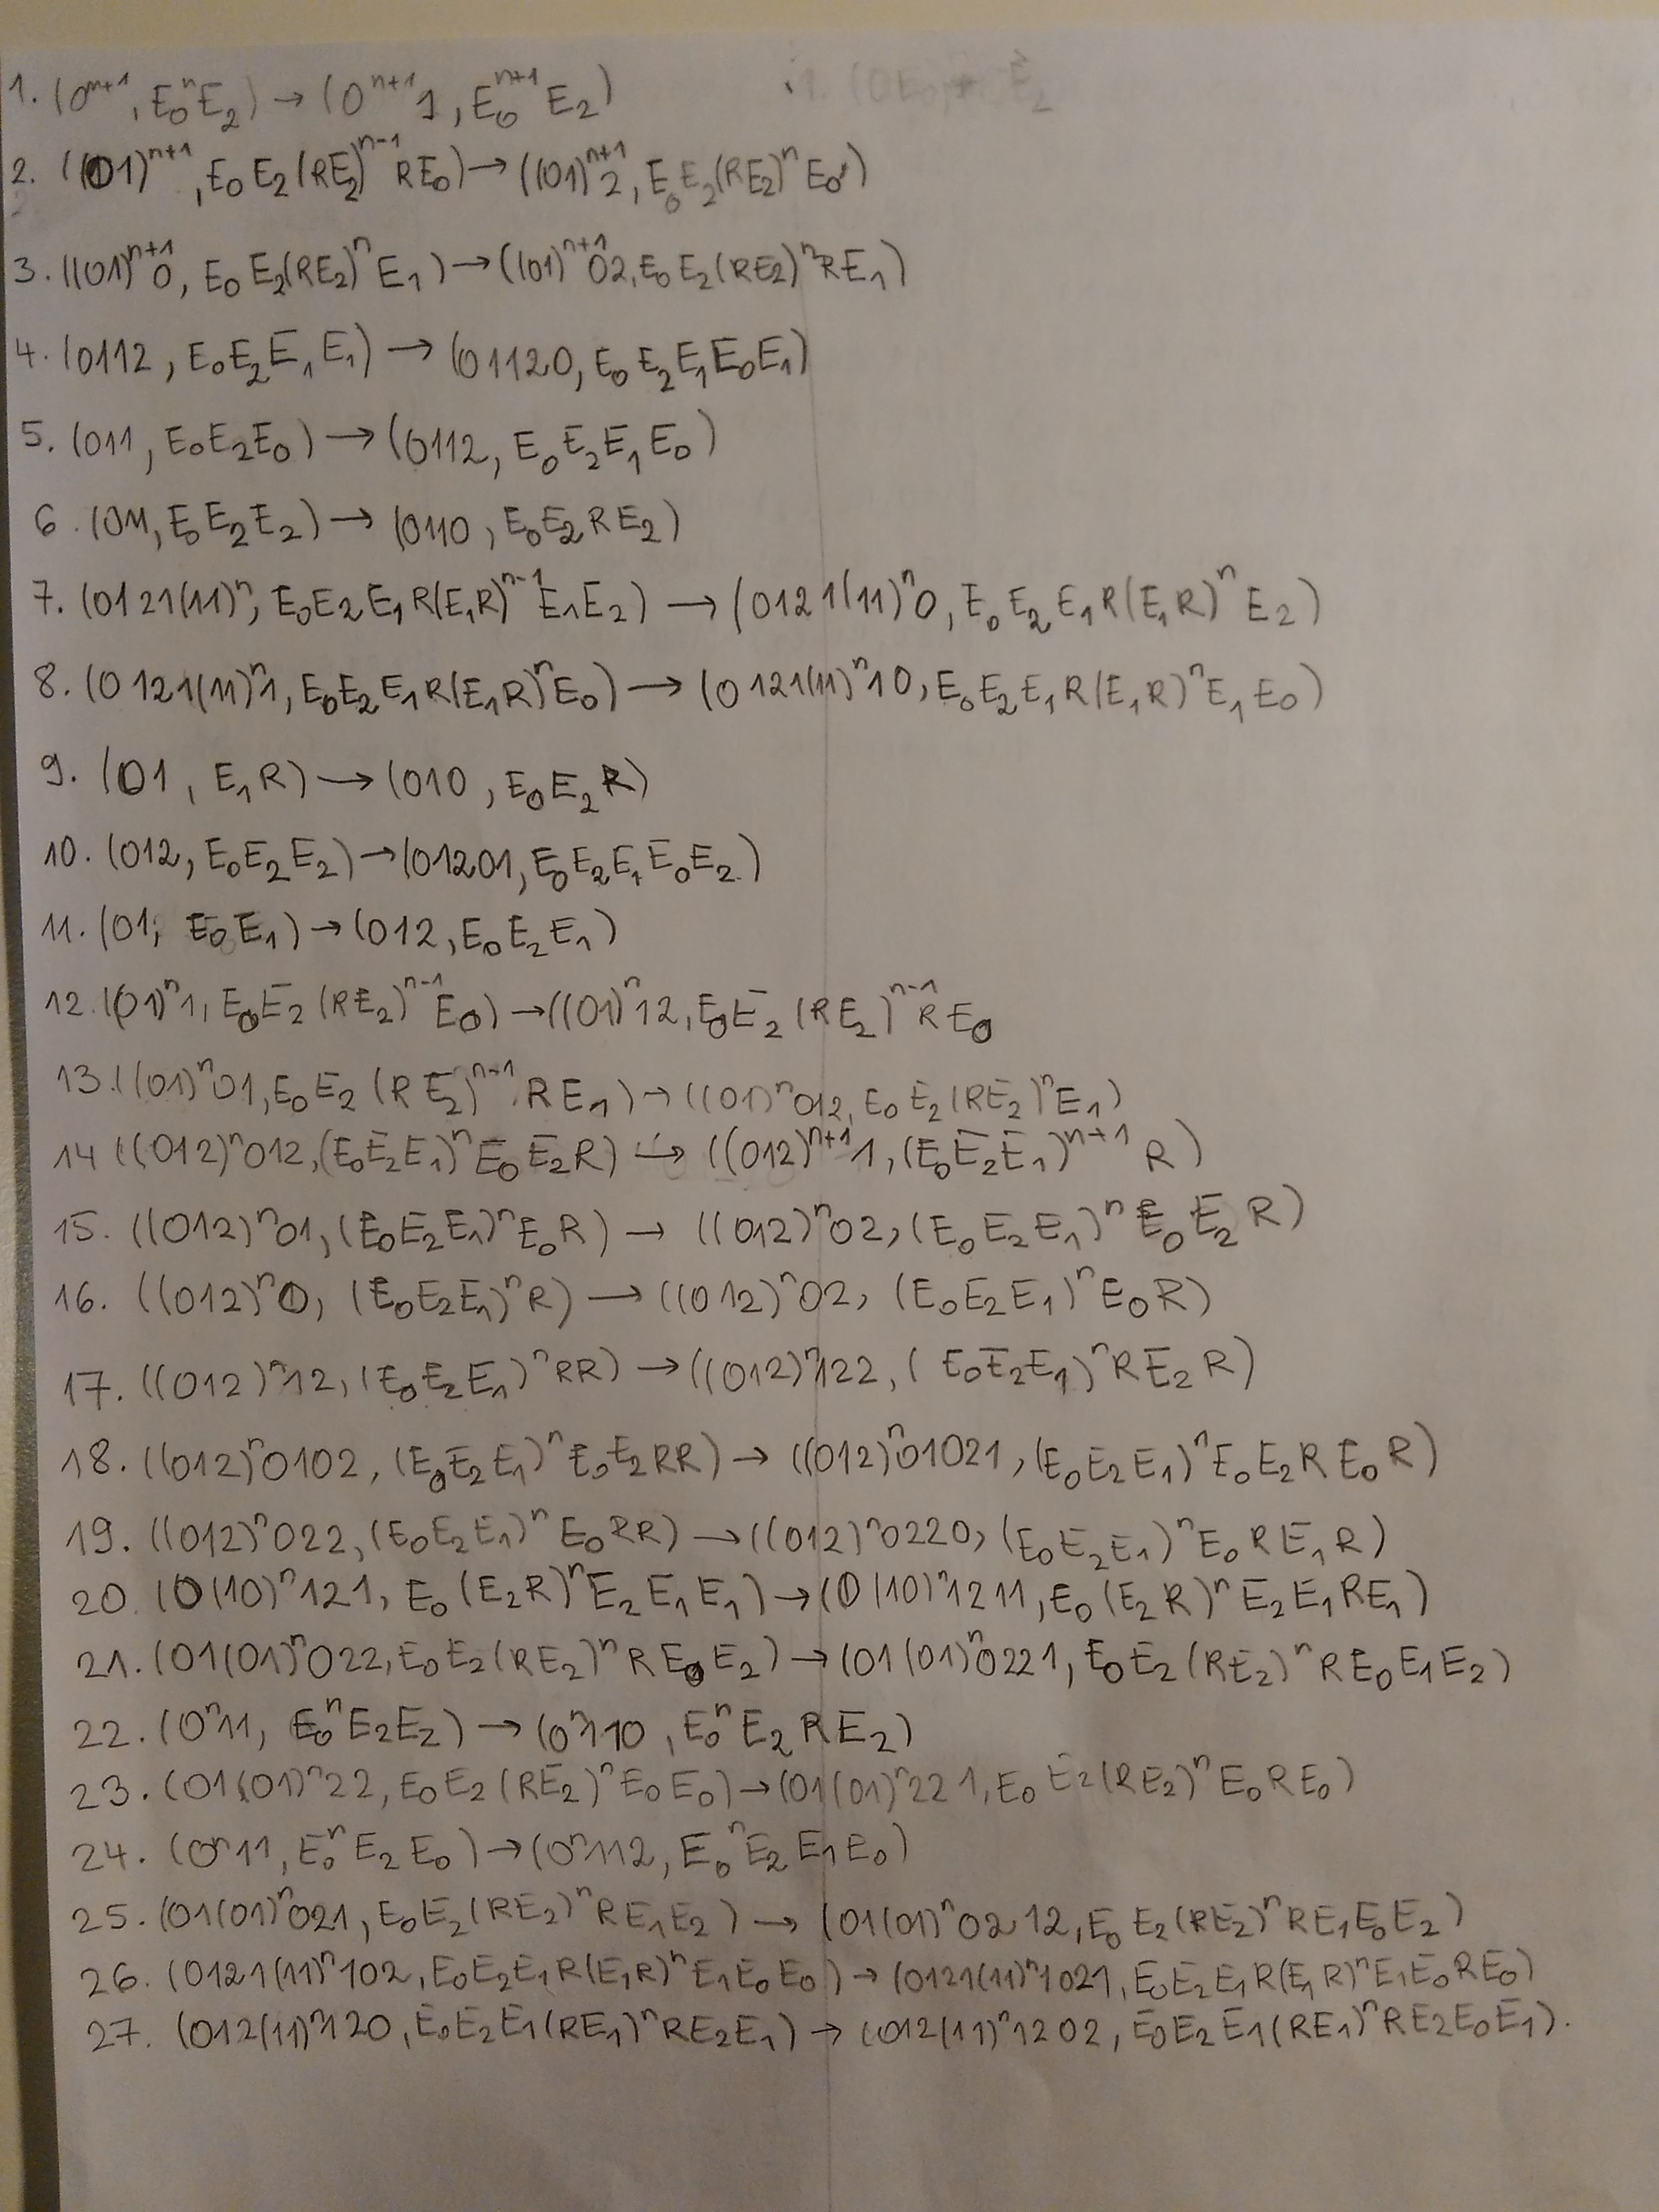 1. (0ⁿ⁺¹, E₀ⁿE₂) → (0ⁿ⁺¹1, E₀ⁿ⁺¹E₂)
2. ((01)ⁿ⁺¹, E₀E₂(RE₂)ⁿ⁻¹RE₀) → ((01)ⁿ⁺¹2, E₀E₂(RE₂)ⁿE₀)
3. ((01)ⁿ⁺¹0, E₀E₂(RE₂)ⁿE₁) → ((01)ⁿ⁺¹02, E₀E₂(RE₂)ⁿRE₁)
4. (0112, E₀E₂E₁E₁) → (01120, E₀E₂E₁E₀E₁)
5. (011, E₀E₂E₀) → (0112, E₀E₂E₁E₀)
6. (011, E₀E₂E₂) → (0110, E₀E₂RE₂)
7. (0121(11)ⁿ, E₀E₂E₁R(E₁R)ⁿ⁻¹E₁E₂) → (0121(11)ⁿ0, E₀E₂E₁R(E₁R)ⁿE₂)
8. (0121(11)ⁿ1, E₀E₂E₁R(E₁R)ⁿE₀) → (0121(11)ⁿ10, E₀E₂E₁R(E₁R)ⁿE₁E₀)
9. (01, E₁R) → (010, E₀E₂R)
10. (012, E₀E₂E₂) → (01201, E₀E₂E₁E₀E₂)
11. (01, E₀E₁) → (012, E₀E₂E₁)
12. (01)ⁿ1, E₀E₂(RE₂)ⁿ⁻¹E₀) → ((01)ⁿ12, E₀E₂(RE₂)ⁿ⁻¹RE₀
13. ((01)ⁿ01, E₀E₂(RE₂)ⁿ⁻¹RE₁) → ((01)ⁿ012, E₀E₂(RE₂)ⁿE₁)
14 ((012)ⁿ012, (E₀E₂E₁)ⁿE₀E₂R) → ((012)ⁿ⁺¹1, (E₀E₂E₁)ⁿ⁺¹R)
15. ((012)ⁿ01, (E₀E₂E₁)ⁿE₀R) → ((012)ⁿ02, (E₀E₂E₁)ⁿE₀E₂R)
16. ((012)ⁿ0, (E₀E₂E₁)ⁿR) → ((012)ⁿ02, (E₀E₂E₁)ⁿE₀R)
17. ((012)ⁿ12, (E₀E₂E₁)ⁿRR) → ((012)ⁿ122, (E₀E₂E₁)ⁿRE₂R)
18. ((012)ⁿ0102, (E₀E₂E₁)ⁿE₀E₂RR) → ((012)ⁿ01021, (E₀E₂E₁)ⁿE₀E₂RE₀R)
19. ((012)ⁿ022, (E₀E₂E₁)ⁿE₀RR) → ((012)ⁿ0220, (E₀E₂E₁)ⁿE₀RE₁R)
20. (0(10)ⁿ121, E₀(E₂R)ⁿE₂E₁E₁) → (0(10)ⁿ1211, E₀(E₂R)ⁿE₂E₁RE₁)
21. (01(01)ⁿ022, E₀E₂(RE₂)ⁿRE₀E₂) → (01(01)ⁿ0221, E₀E₂(RE₂)ⁿRE₀E₁E₂)
22. (0ⁿ11, E₀ⁿE₂E₂) → (0ⁿ110, E₀ⁿE₂RE₂)
23. (01(01)ⁿ22, E₀E₂(RE₂)ⁿE₀E₀) → (01(01)ⁿ221, E₀E₂(RE₂)ⁿE₀RE₀)
24. (0ⁿ11, E₀ⁿE₂E₀) → (0ⁿ112, E₀ⁿE₂E₁E₀)
25. (01(01)ⁿ021, E₀E₂(RE₂)ⁿRE₁E₂) → (01(01)ⁿ0212, E₀E₂(RE₂)ⁿRE₁E₀E₂)
26. (0121(11)ⁿ102, E₀E₂E₁R(E₁R)ⁿE₁E₀E₀) → (0121(11)ⁿ1021, E₀E₂E₁R(E₁R)ⁿE₁E₀RE₀)
27. (012(11)ⁿ120, E₀E₂E₁(RE₁)ⁿRE₂E₁) → (012(11)ⁿ1202, E₀E₂E₁(RE₁)ⁿRE₂E₀E₁).